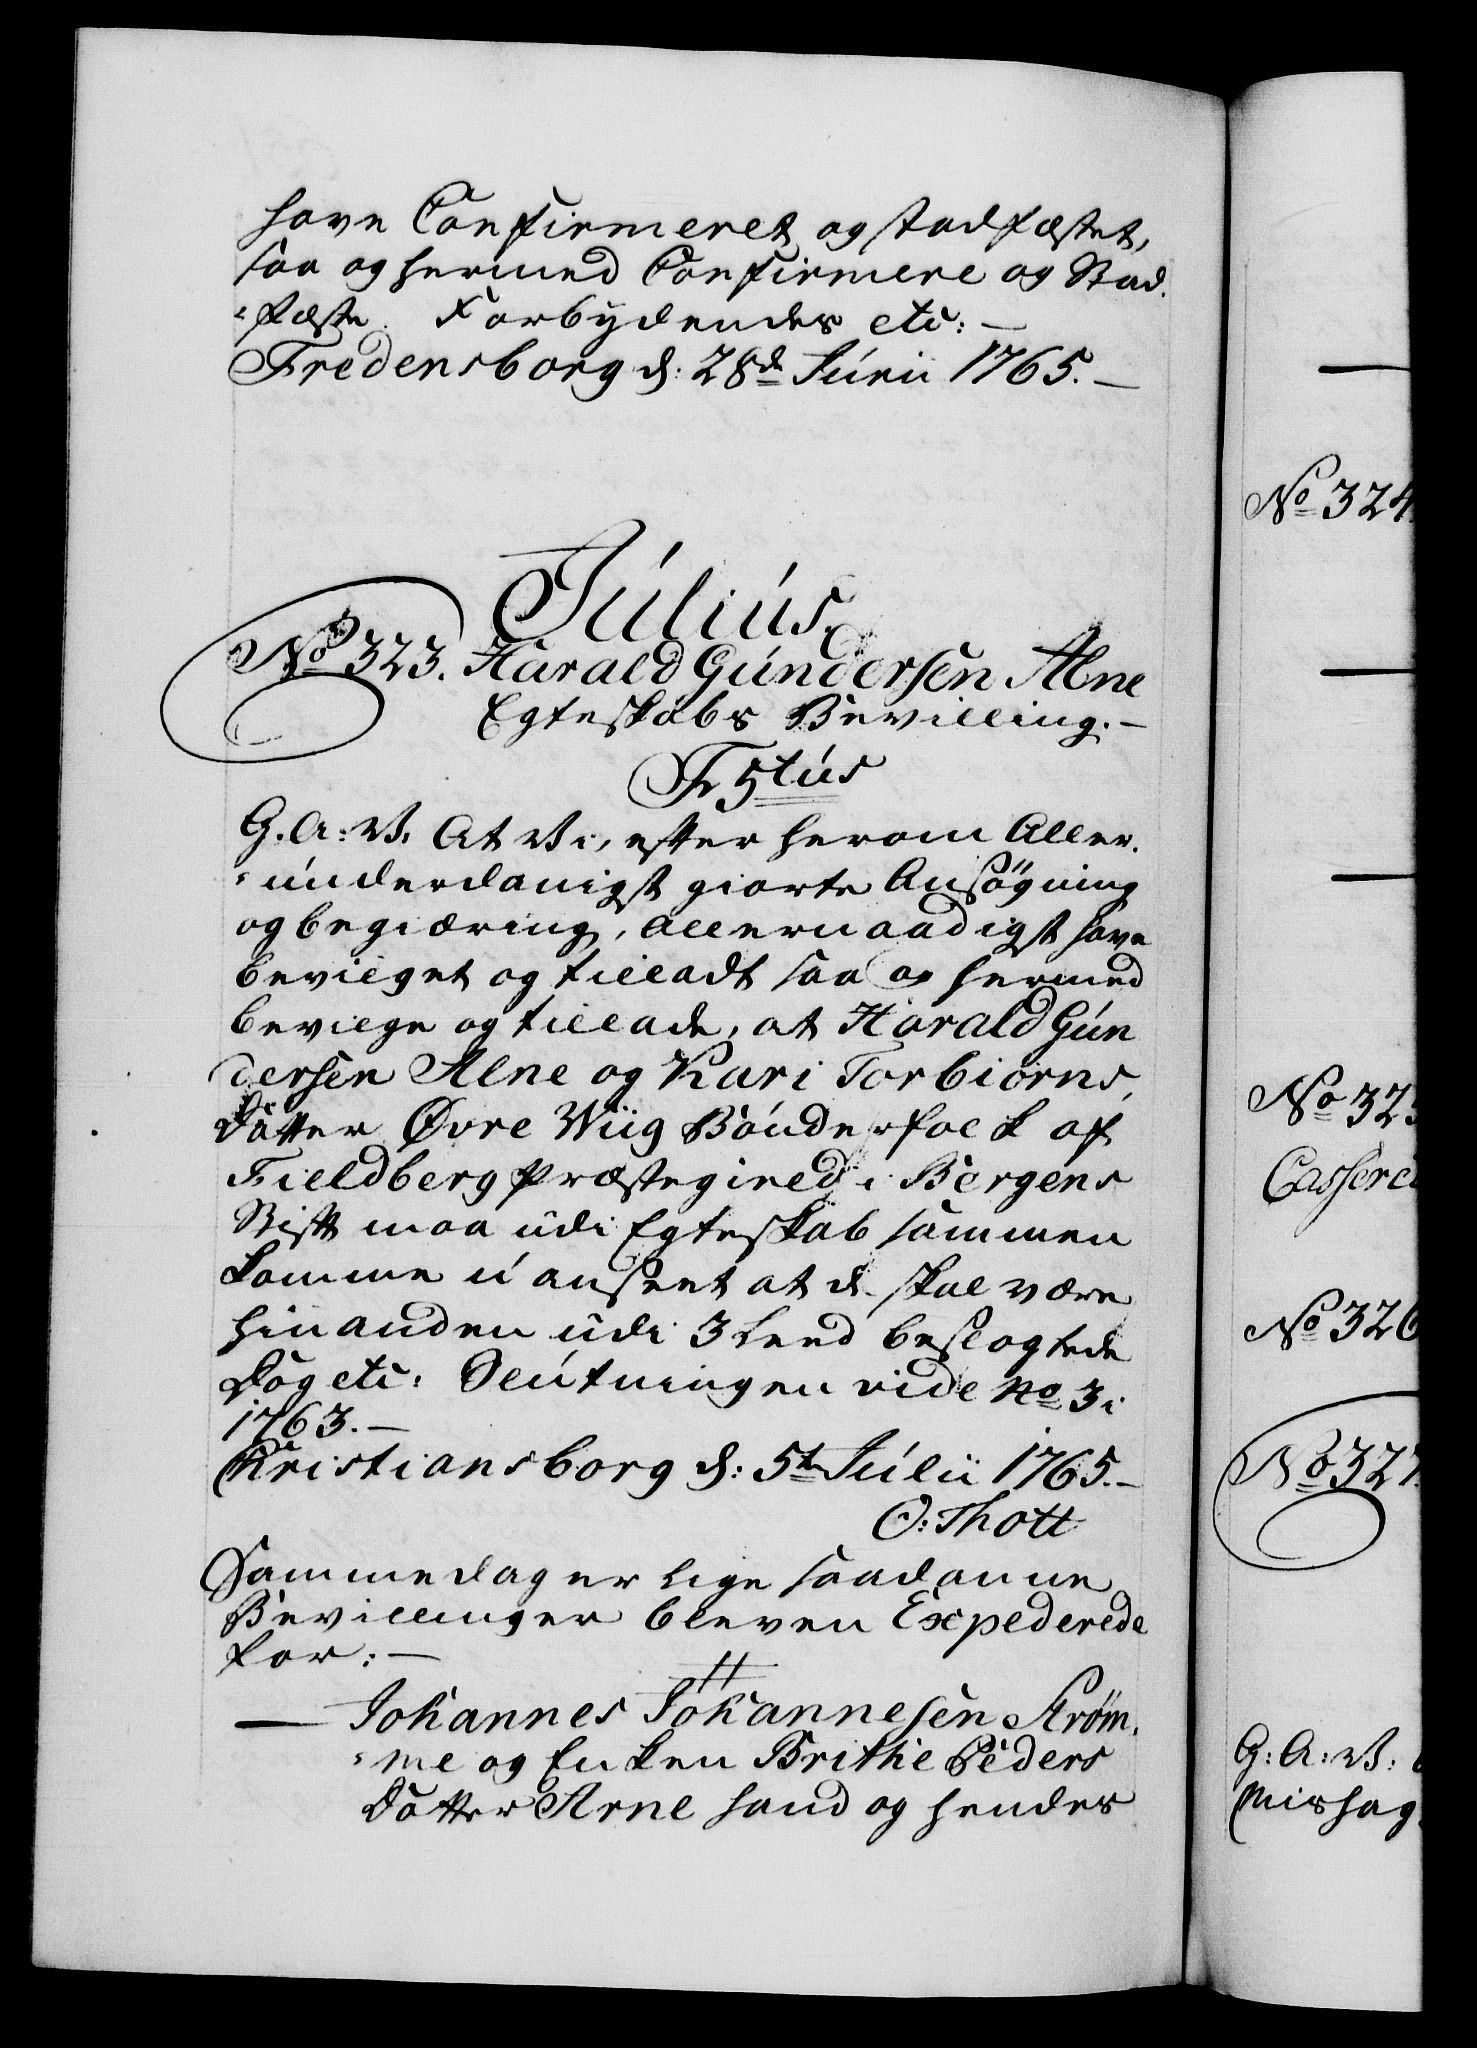 have Confirmeret og stadfæstet,
saa og hermed Confirmere og Stad-
fæste. Forbydendes etc: —
Fredensborg d: 28de Junii 1765. —
Julius.
No 323. Harald Gundersen Alne
Egteskabs Bevilling. —
F 5tus
G. A: V: At Vi, efter herom Aller-
underdanigst giorte Ansøgning
og begiæring, allernaadigst have
bevilget og tilladt saa og hermed
bevilge og tillade, at Harald Gun
dersen Alne og Kari Torbiørns
Datter Øvre Wiig Bønderfolk af
Fieldberg Præstegield i Bergens
Stift maa udi Egteskab sammen
komme uanseet at de skal være
hinanden udi 3 Leed beslægtede
Dog etc: Slutningen vide No 3 i
1763. —
Christiansborg d: 5te Julii 1765. —
O: Thott
Samme dag er lige saadanne
Bevillinger bleven Expederede
for: —
— Johannes Johannesen Strøm-
me og Enken Brithe Peders
Datter Arne hand og hendes
No 324
No 32
No 326
No 327.
G: A: V: